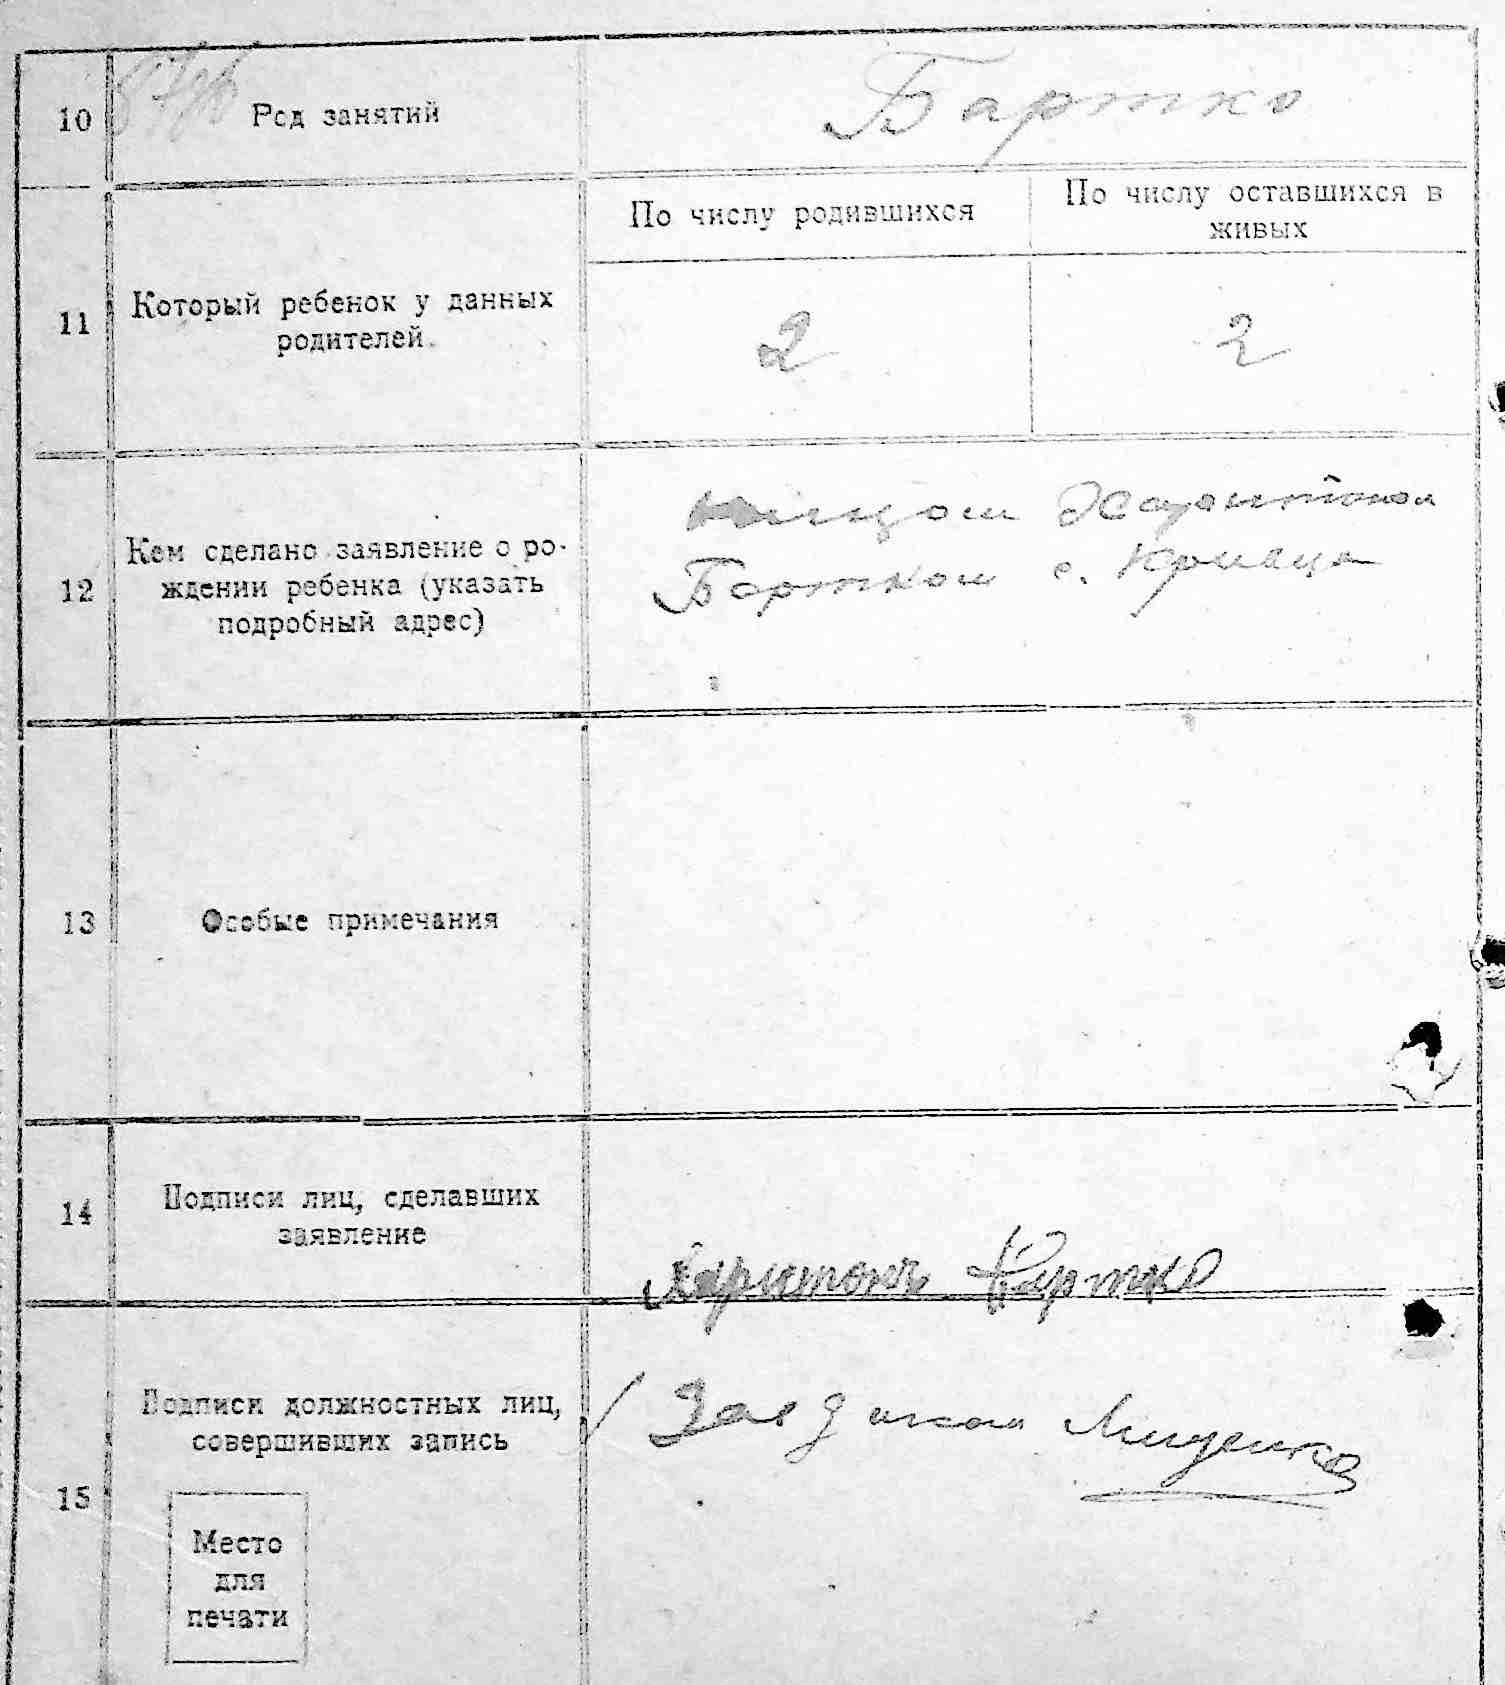 10
Род занятий
Бартко
11
Который ребенок у данных
родителей
По числу родившихся
По числу оставшихся в
живых
2
2
12
Кем сделано заявление о ро-
ждении ребенка (указать
подробный адрес)
Харитоном
Бартком с.
13
Особые примечания
14
Подписи лиц, сделавших
заявление
Харитонъ Бартко
15
Подписи должностных лиц,
совершивших запись
Место
для
печати